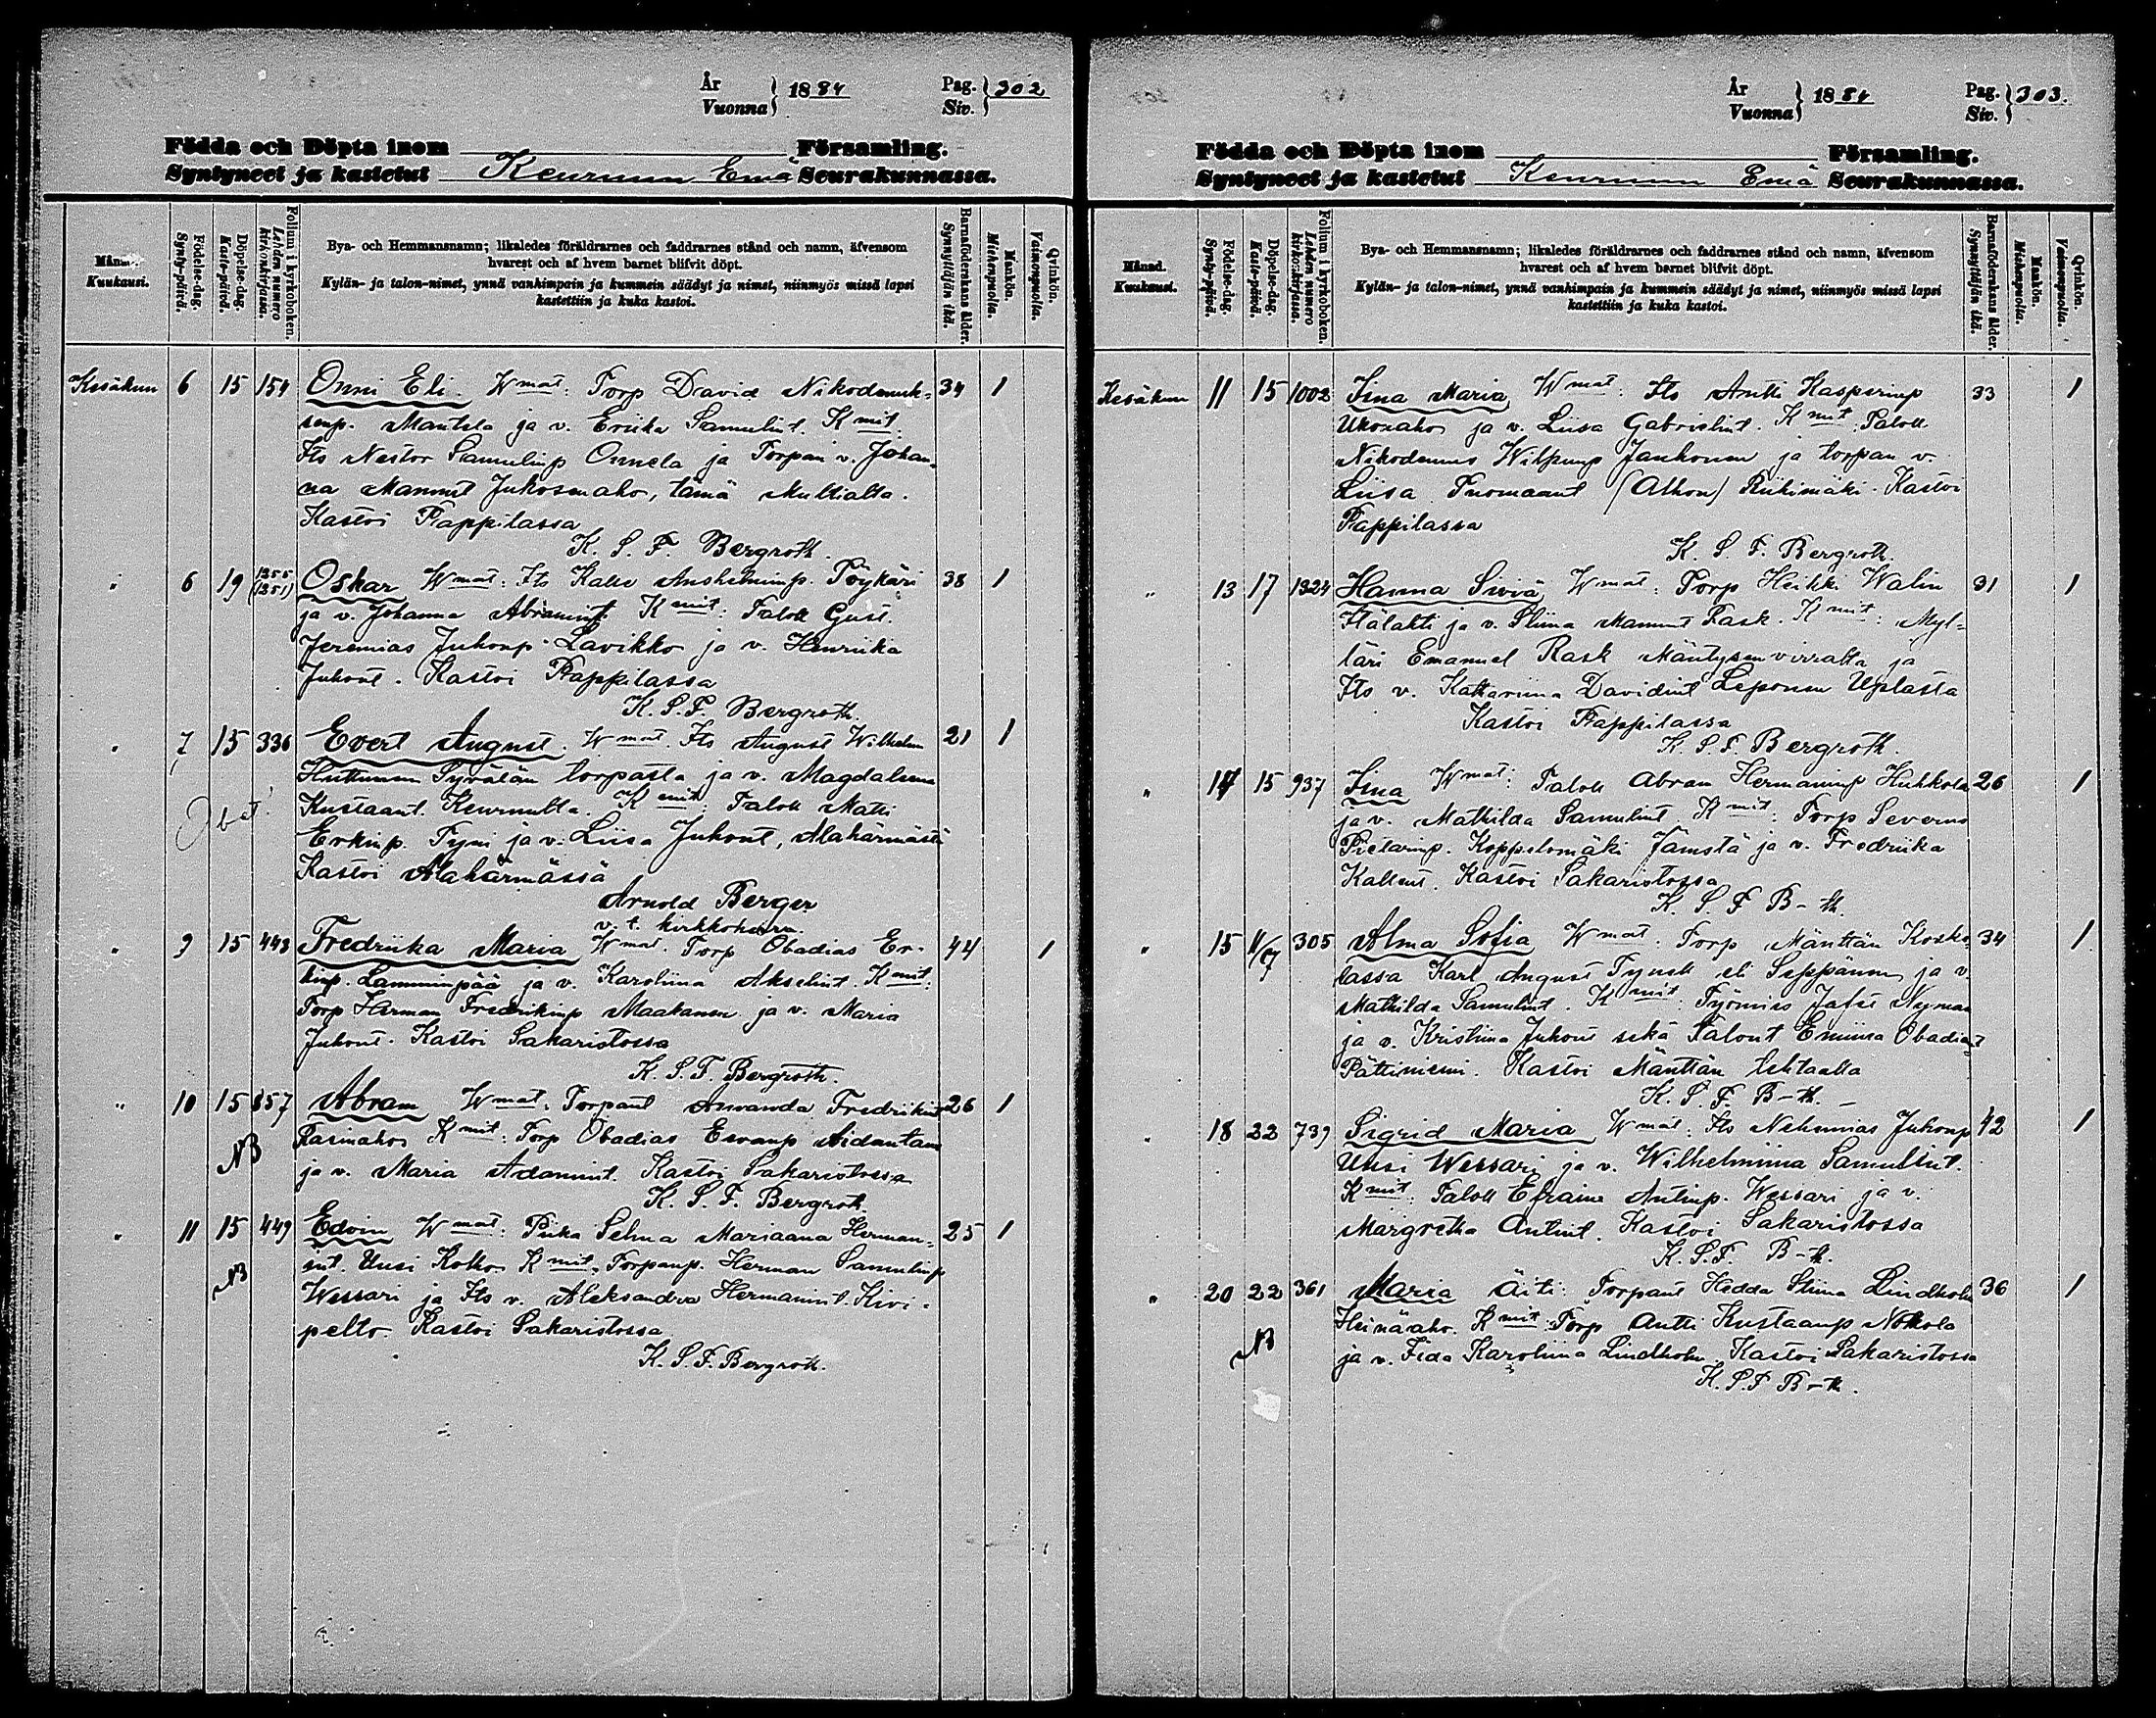 År
Vuonna } 1884
Pag.
Siv. } 302
Födda och Döpta inom Församling.
Syntyneet ja kastetut Keuruun Emä Seurakunnassa.
Månad.
Kuukausi.
Födelse-dag.
Synty-päivä.
Döpelse-dag.
Kaste-päivä.
Folium i kyrkoboken.
Lehden numero kirkonkirjassa.
Bya- och Hemmansnamn; likaledes föräldrarnes och faddrarnes stånd och namn, äfvensom
hvarest och af hvem barnet blifvit döpt.
Kylän- ja talon-nimet, ynnä vanhimpain ja kummein säädyt ja nimet, niinmyös missä lapsi
kastettiin ja kuka kastoi.
Barnaföderskans ålder.
Synnyttäjän ikä.
Mankön.
Miehenpuolia.
Qvinkön.
Vaimonpuolia.
Kesäkuu 6 15 154 Onni Eli. Wmat: Torp David Nikodemuk- 34 1
senp. Mantsla ja v. Eriika Samulint. Kmit.
Its Nestor Samulinp Onnela ja Torpan v. Johan-
na Mannut Jukosenaho, tämä Multialta.
Kastoi Pappilassa
K. S. F. Bergroth.
" 6 19 1255 (1251) Oskar Wmat: Its Kalle Anshelminp. Pöykäri 38 1
ja v. Johanna Abramint. Kmit: Taloll Gust.
Jeremias Juhonp. Lavikko ja v. Henriika
Juhont. Kastoi Pappilassa
K. S. F. Bergroth.
" 7 15 336 Evert August. Wmat. Its August Wilhelm 21 1
Huttunen Syvälän torpasta ja v. Magdaleena
Kustaant. Keuruulta. Kmit: Taloll Matti
Erkinp. Tyni ja v. Liisa Juhont, Alahärmästä
Kastoi Alahärmässä
Arnold Berger
v. t. kirkkoherra.
Obs!
" 9 15 443 Fredriika Maria Wmat. Torp Obadias Er- 44 1
kinp. Lamminpää ja v. Karoliina Akselint. Kmit:
Torp Herman Fredrikinp Maakanen ja v. Maria
Juhont. Kastoi Sakaristossa
K. S. F. Bergroth.
" 10 15 857 Abram Wmat. Torpant Amanda Fredrikint 26 1
Pasinaho Kmit: Torp Obadias Esvanp Aidantaus
NB
ja v. Maria Adamint. Kastoi Sakaristossa
K. S. F. Bergroth.
" 11 15 449 Edvin Wmat: Piika Selma Mariaana Herman- 25 1
int. Uusi Kolho Kmit. Torpanp. Herman Samulinp
NB
Wessari ja Its v. Aleksandra Hermanint. Kivi-
pelto. Kastoi Sakaristossa
K. S. F. Bergroth.
År
Vuonna } 1884
Pag.
Siv. } 303.
Födda och Döpta inom Församling.
Syntyneet ja kastetut Keuruun Emä Seurakunnassa.
Månad.
Kuukausi.
Födelse-dag.
Synty-päivä.
Döpelse-dag.
Kaste-päivä.
Folium i kyrkoboken.
Lehden numero kirkonkirjassa.
Bya- och Hemmansnamn; likaledes föräldrarnes och faddrarnes stånd och namn, äfvensom
hvarest och af hvem barnet blifvit döpt.
Kylän- ja talon-nimet, ynnä vanhimpain ja kummein säädyt ja nimet, niinmyös missä lapsi
kastettiin ja kuka kastoi.
Barnaföderskans ålder.
Synnyttäjän ikä.
Mankön.
Miehenpuolia.
Qvinkön.
Vaimonpuolia.
Kesäkuu 11 15 1002 Iina Maria Wmat: Its Antti Kasperinp 33 1
Ukonaho ja v. Liisa Gabrielint. Kmit: Taloll
Nikodemus Wilpunp Jankonen ja torpan v.
Liisa Tuomaant (Alhon) Riihimäki. Kastoi
Pappilassa
K. S. F. Bergroth.
" 13 17 1324 Hanna Siviä Wmat: Torp Heikki Walin 31 1
Itälahti ja v. Stiina Mannut Rask. Kmit: Myl-
läri Emanuel Rask Mäntysenvirralta ja
Its v. Kathariina Davidint Leponen Uplasta
Kastoi Pappilassa
K. S. F. Bergroth.
" 14 15 937 Iina Wmat: Taloll Abram Hermaninp Huhkola 26 1
ja v. Mathilda Samulint. Kmit: Torp Severus
Pietarinp. Koppelomäki Jämstä ja v. Fredriika
Kallent. Kastoi Sakaristossa
K. S. F B-th.
" 15 11/7 305 Alma Sofia Wmat. Torp Mänttän Kosko- 34 1
lassa Karl August Tynell eli Seppänen ja v.
Mathilda Samulint. Kmit: Työmies Jafet Nyman
ja v. Kristiina Juhont sekä Talont Emiina Obadiant
Pättiniemi. Kastoi Mänttän tehtaalla
K. S. F. B-th.
" 18 22 739 Sigrid Maria Wmat: Its Nehemias Juhonp 42 1
Uusi Wessari ja v. Wilhelmiina Samulint.
Kmit. Taloll Efraim Antinp. Wessari ja v.
Margretha Antint. Kastoi Sakaristossa
K. S. F. B-th.
" 20 22 361 Maria Äiti: Torpant Hedda Stiina Lindholm 36 1
Heinäaho. Kmit: Torp Antti Kustaanp Nokola
NB
ja v. Iida Karoliina Lindholm Kastoi Sakaristossa
K. S. F B-th.